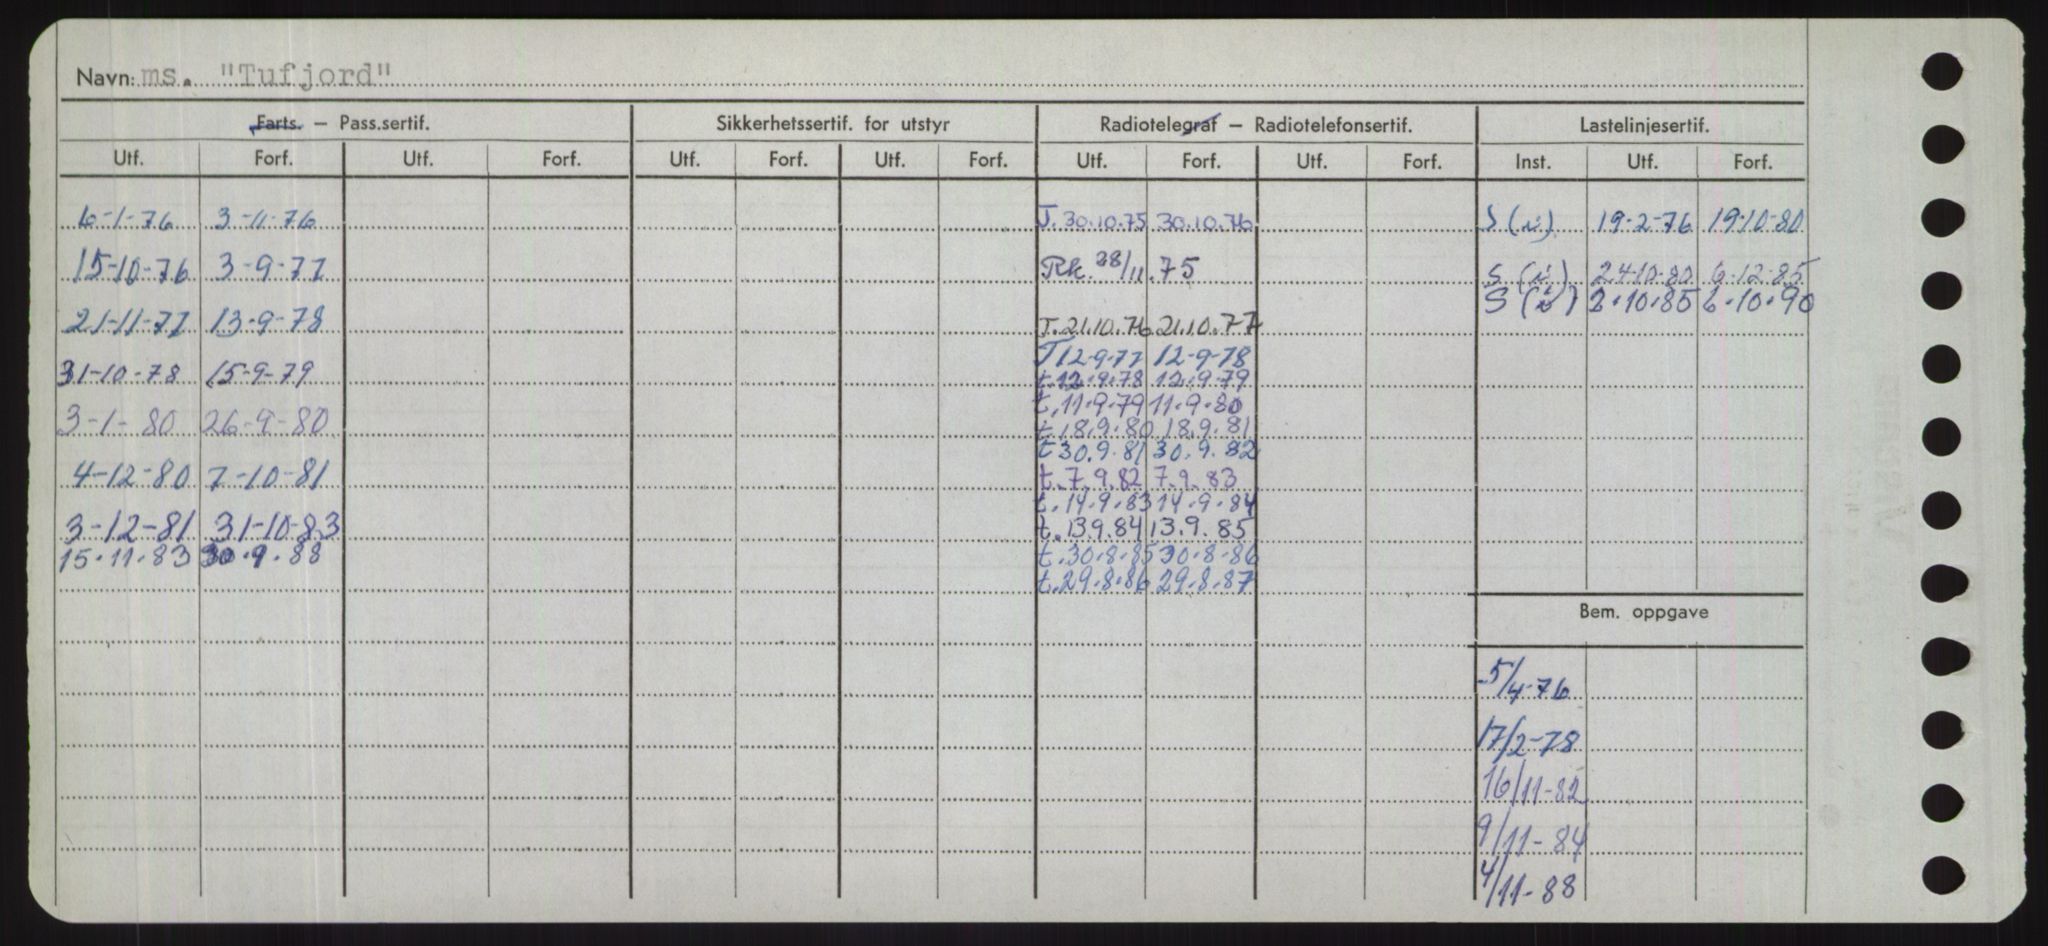 Navn: ms. "Tufjord"
Farts. — Pass.sertif. Sikkerhetssertif. for utstyr Radiotelegraf — Radiotelefonsertif. Lastelinjesertif.
Utf. Forf. Utf. Forf. Utf. Forf. Utf. Forf. Utf. Forf. Utf. Forf. Inst. Utf. Forf.
6-1-76 3-11-76 T. 30.10.75 30.10.76 S (i) 19-2-76 19-10-80
15-10-76 3-9-77 Rk. 28/11.75 S (i) 24-10-80 6-12-85
S (i) 2.10.85 6.10.90
21-11-77 13-9-78 T. 21.10.76 21.10.77
T 12-9-77 12-9-78
31-10-78 15-9-79 t. 12.9.78 12.9.79
t. 11.9.79 11.9.80
3-1-80 26-9-80 t. 18.9.80 18.9.81
t 30.9.81 30.9.82
4-12-80 7-10-81 t. 7.9.82 7.9.83
t. 14.9.83 14.9.84
3-12-81 31-10-83 t. 13.9.84 13.9.85
15.11.83 30.9.88 t. 30.8.85 30.8.86
t. 29.8.86 29.8.87
Bem. oppgave
5/4-76
17/2-78
16/11-82
9/11-84
4/11-88